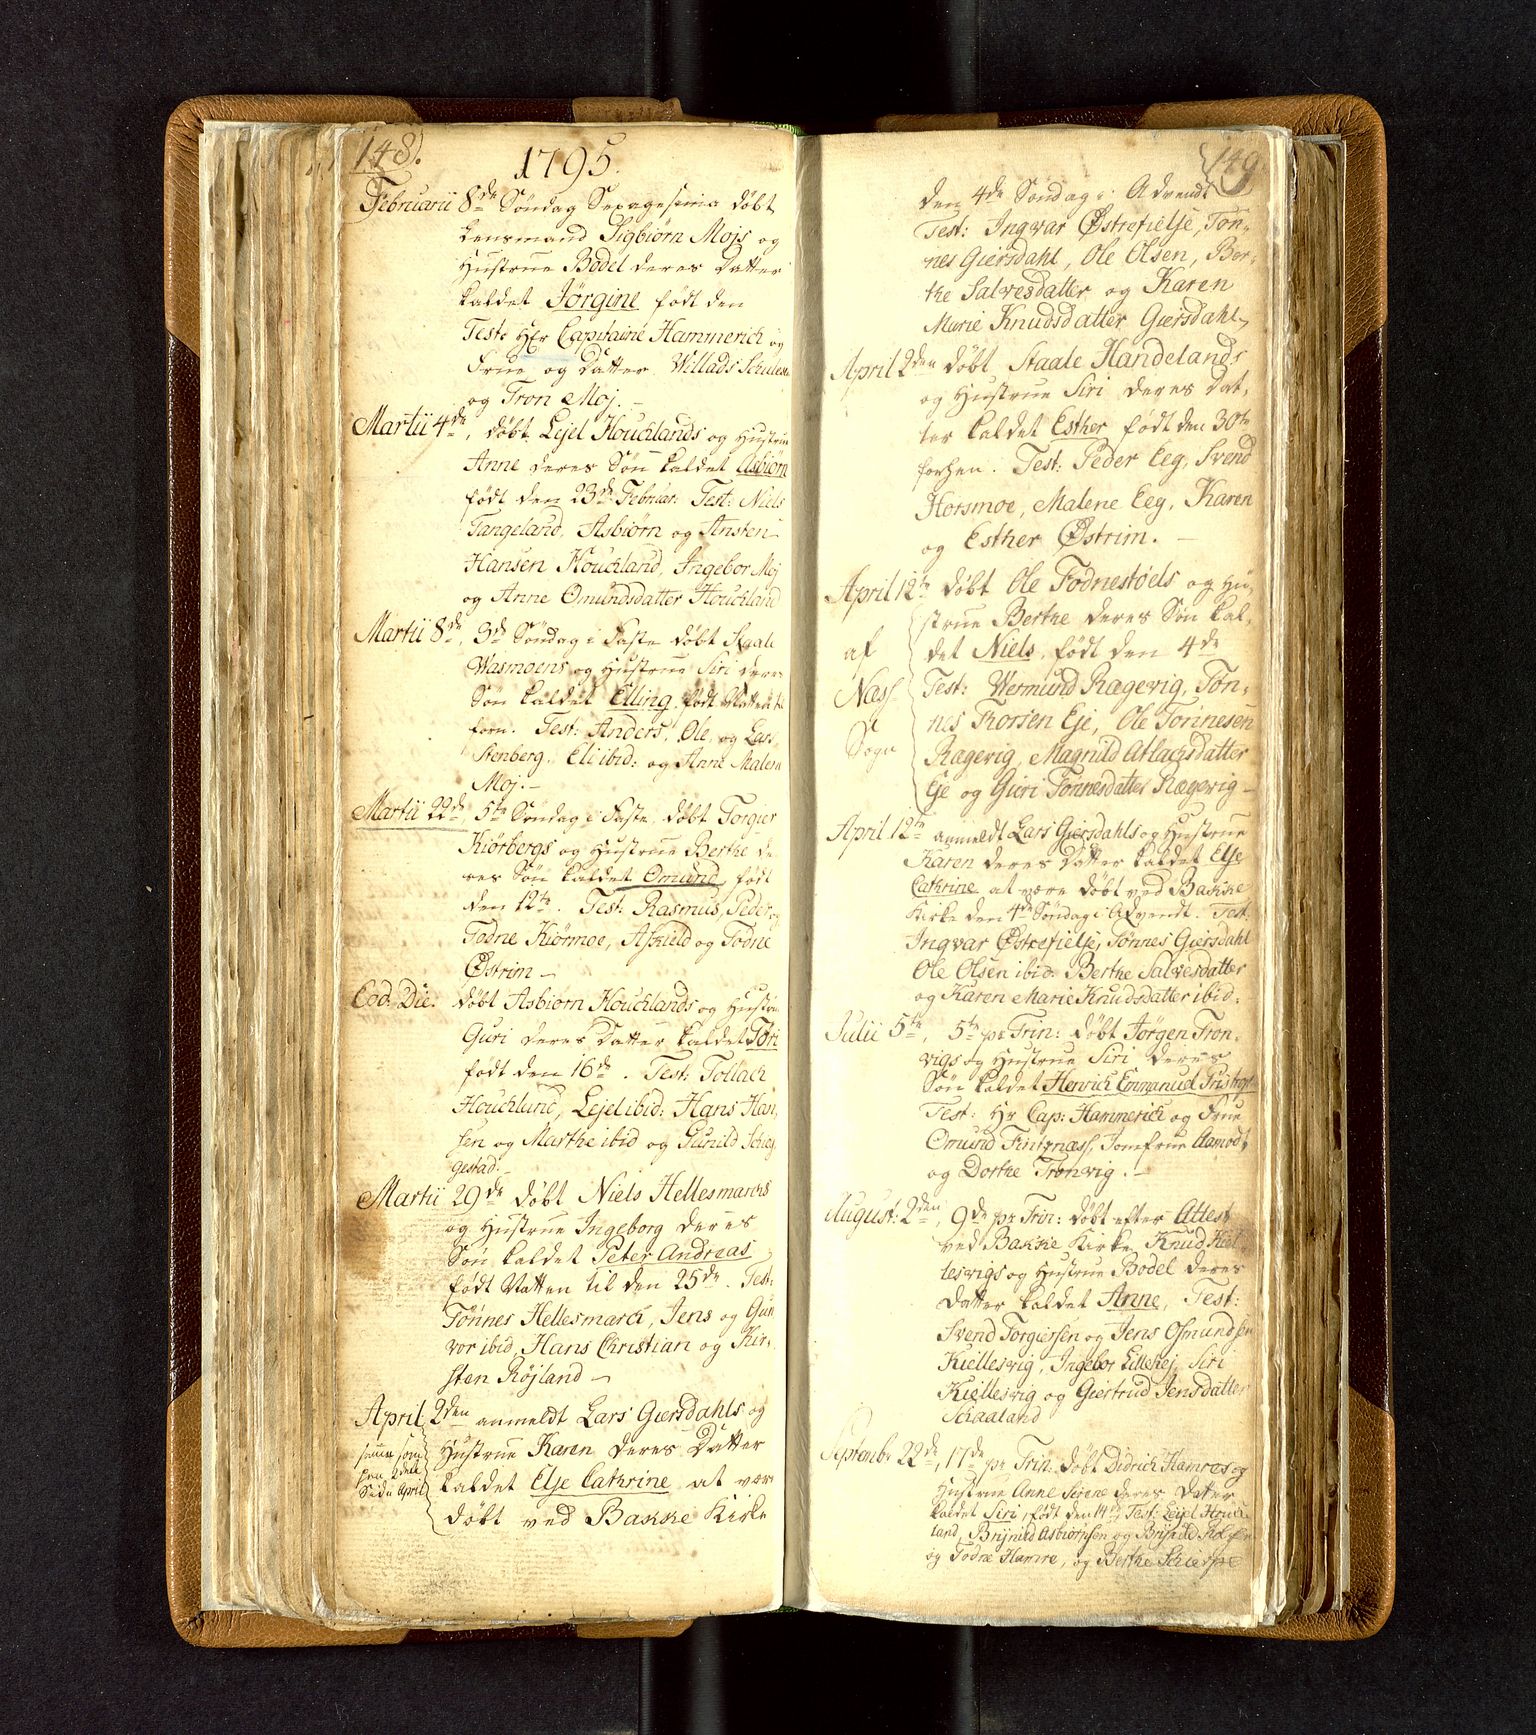 148.
1795.
Februarii 8de Søndag Sexagesima døbt
Lensmand Sigbiørn Mojs og
Hustrue Bodel deres Datter
kaldet Jørgine født den
Test: Hr Capitaine Hammerich og
Frue og Datter Willads Schulend
og Tron Moj. –
Martii 4de, døbt Lejel Houchlands og Hustrue
Anne deres Søn kaldet Asbiørn
født den 23de Februar: Test: Niels
Tangeland, Asbiørn og Ansten
Hansen Houchland, Ingebor Moj
og Anne Omundsdatter Houchland
Martii 8de, 3de Søndag i Faste døbt Staale
Wasmoens og Hustrue Siri deres
Søn kaldet Elling, født Natten til
forn. Test: Anders, Ole og Lars
Stenberg, Eli ibid: og Anne Malena
Moj. –
Martii 22de, 5te Søndag i Faste døbt Torgier
Kiørbergs og Hustrue Berthe de-
res Søn kaldet Omund, født
den 12te. Test: Rasmus, Peder og
Todne Kiørmoe, Askield og Todne
Østrim –
Eod: Die. døbt Asbiørn Houchlands og Hustrue
Guri deres Datter kaldet Tori
født den 16de. Test: Tollach
Houchland, Lejel ibid: Hans Han-
sen og Marthe ibid og Gunild Schieg-
gestad. –
Martii 29de døbt Niels Hellesmarchs
og Hustrue Ingeborg deres
Søn kaldet Peter Andreas
født Natten til den 25de. Test:
Tønnes Hellesmarch, Jens og Gun-
vor ibid, Hans Christian og Kir-
sten Røjland –
April 2den anmeldt Lars Giersdahls og
Hustrue Karen deres Datter
kaldet Else Cathrine at være
døbt ved Bakke Kirke
149
den 4de Søndag i Advendt
Test: Ingvar Østrefielse, Tøn-
nes Giersdahl, Ole Olsen, Ber-
the Salvesdatter og Karen
Marie Knudsdatter Giersdahl,
April 2den døbt Staale Handelands
og Hustrue Siri deres Dat-
ter kaldet Esther født den 30te
forhen. Test: Peder Eeg, Svend
Horsmoe, Malene Eeg, Karen
og Esther Østrim. –
April 12te døbt Ole Fodnestoels og Hu-
strue Berthe deres Søn kal-
af
det Niels, født den 4de
Næss
Test: Wermund Rægevig, Tøn-
nes Thorsen Eje, Ole Tønnesen
Sogn
Rægevig, Magnild Atlachsdatter
Eje og Guri Tønnesdatter Rægevig –
April 12te anmeldt Lars Giersdahls og Hustrue
Karen deres Datter kaldet Else
Cathrine at være døbt ved Bakke
Kirke den 4de Søndag i Advendt. Test:
Ingvar Østrefielse, Tønnes Giersdahl
Ole Olsen ibid. Berthe Salvesdatter
og Karen Marie Knudsdatter ibid:
Julii 5te, 5te pt Trin: døbt Jørgen Tron-
vigs og Hustrue Siri deres
Søn kaldet Henrich Emmanuel
Test: Hr Cap: Hammerich og Frue
Omund Jomfrue Aamodt
og Dorthe Tronvig. –
August: 2den, 9de pt Trin: døbt efter Attest
ved Bakke Kirke Knud Kiel-
lesvigs og Hustrue Bodel deres
Datter kaldet Anne, Test:
Svend Torgiersen og Jens Osmundsen
Kiellesvig, Ingebor Lillehej, Siri
Kiellesvig og Giertrud Jensdatter
Schaaland
Septembr 22de, 17de pt Trin: døbt Didrich Hamres og
Hustrue Anne Sirene deres Datter
kaldet Siri, født den 14de Test: Lejel Houch-
land, Brynild Asbiørnsen og Brynild
og Todne Hamre, og Berthe Schierpe